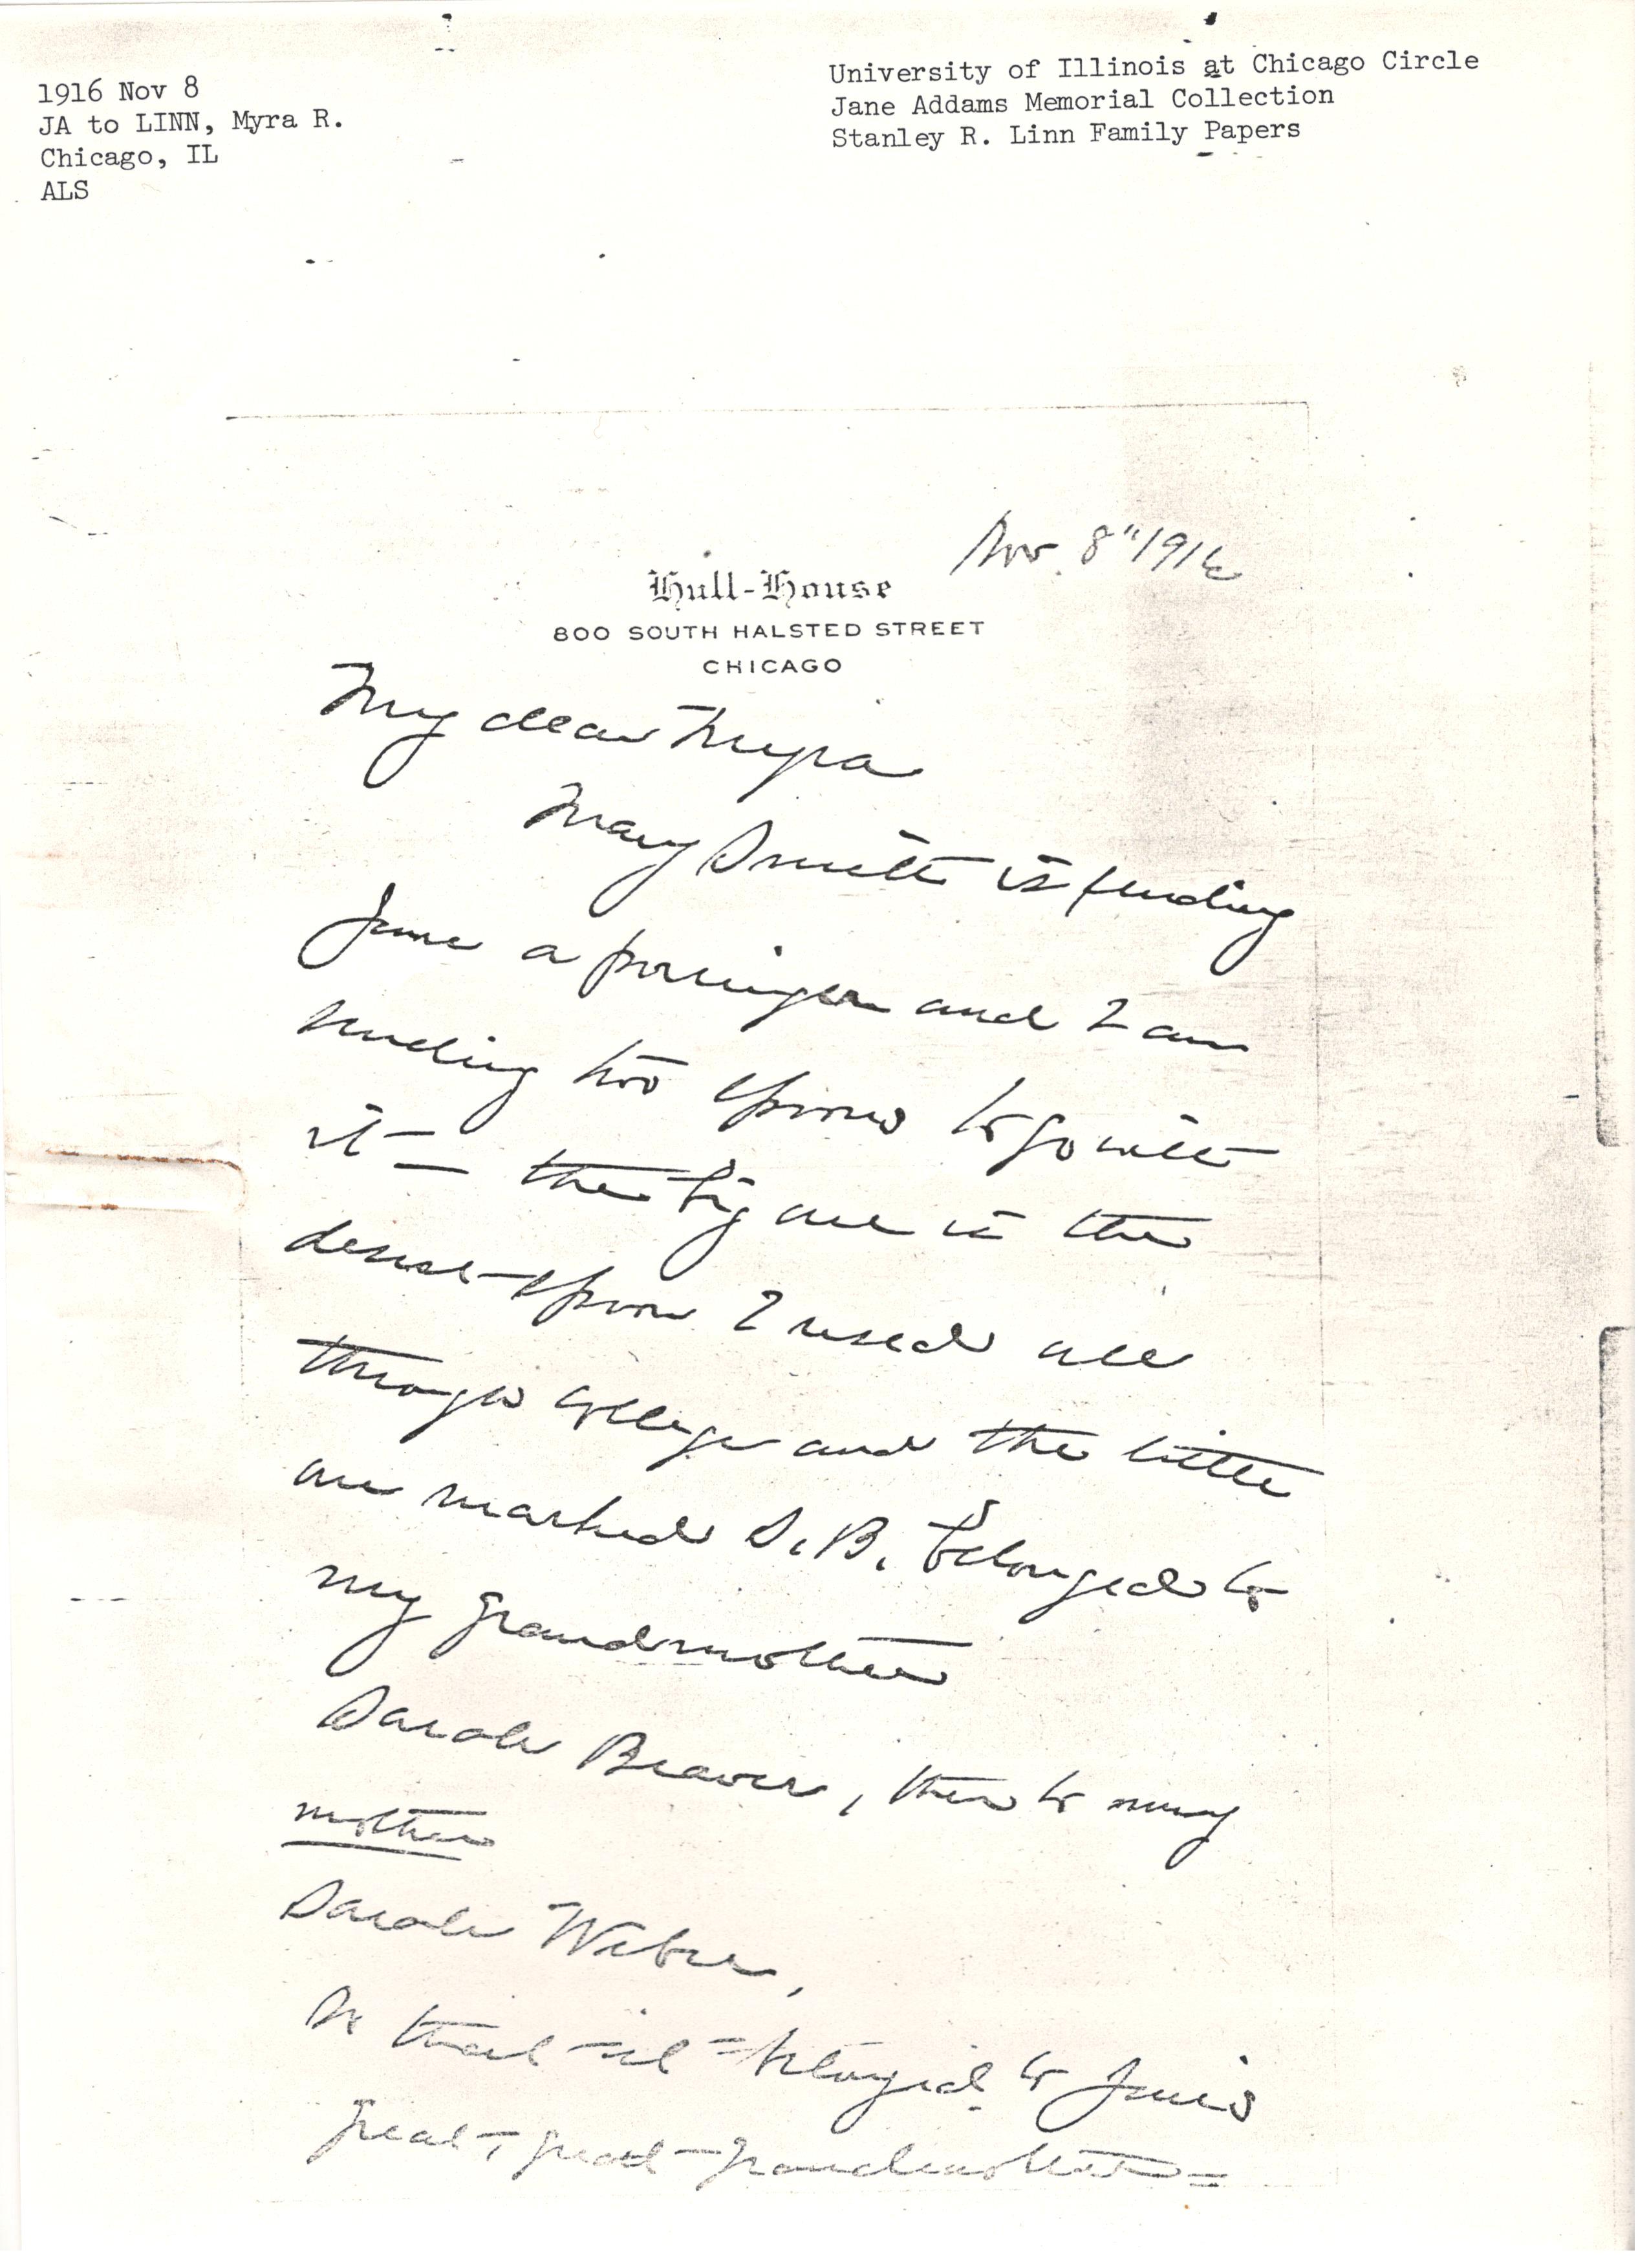 1916 Nov 8
JA to LINN, Myra R.
Chicago, IL
ALS
University of Illinois at Chicago Circle
Jane Addams Memorial Collection
Stanley R. Linn Family Papers
Nov. 8" 1916
Hull-House
800 SOUTH HALSTED STREET
CHICAGO
My dear Myra
Mary Smith is sending
Jane a porringer and I am
sending two spoons to go with
it — the big one is the
desert-spoon I used all
through college and the little
one marked S.B. belonged to
my grandmother
Sarah Beaver, then to my
mother
Sarah Weber,
So that it belonged to Jane's
great-great-grandmother =